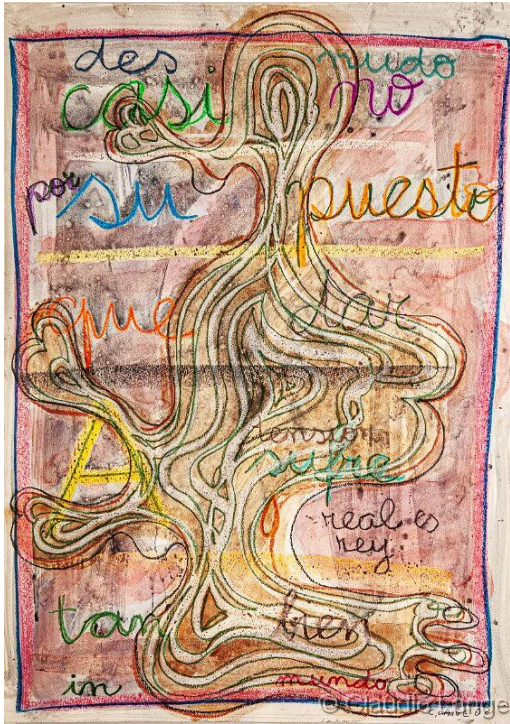 des nudo
casi no
por su puesto
que dar
A tension
sufre
real es
rey
tan bien
in mundo
© Claudio Lange